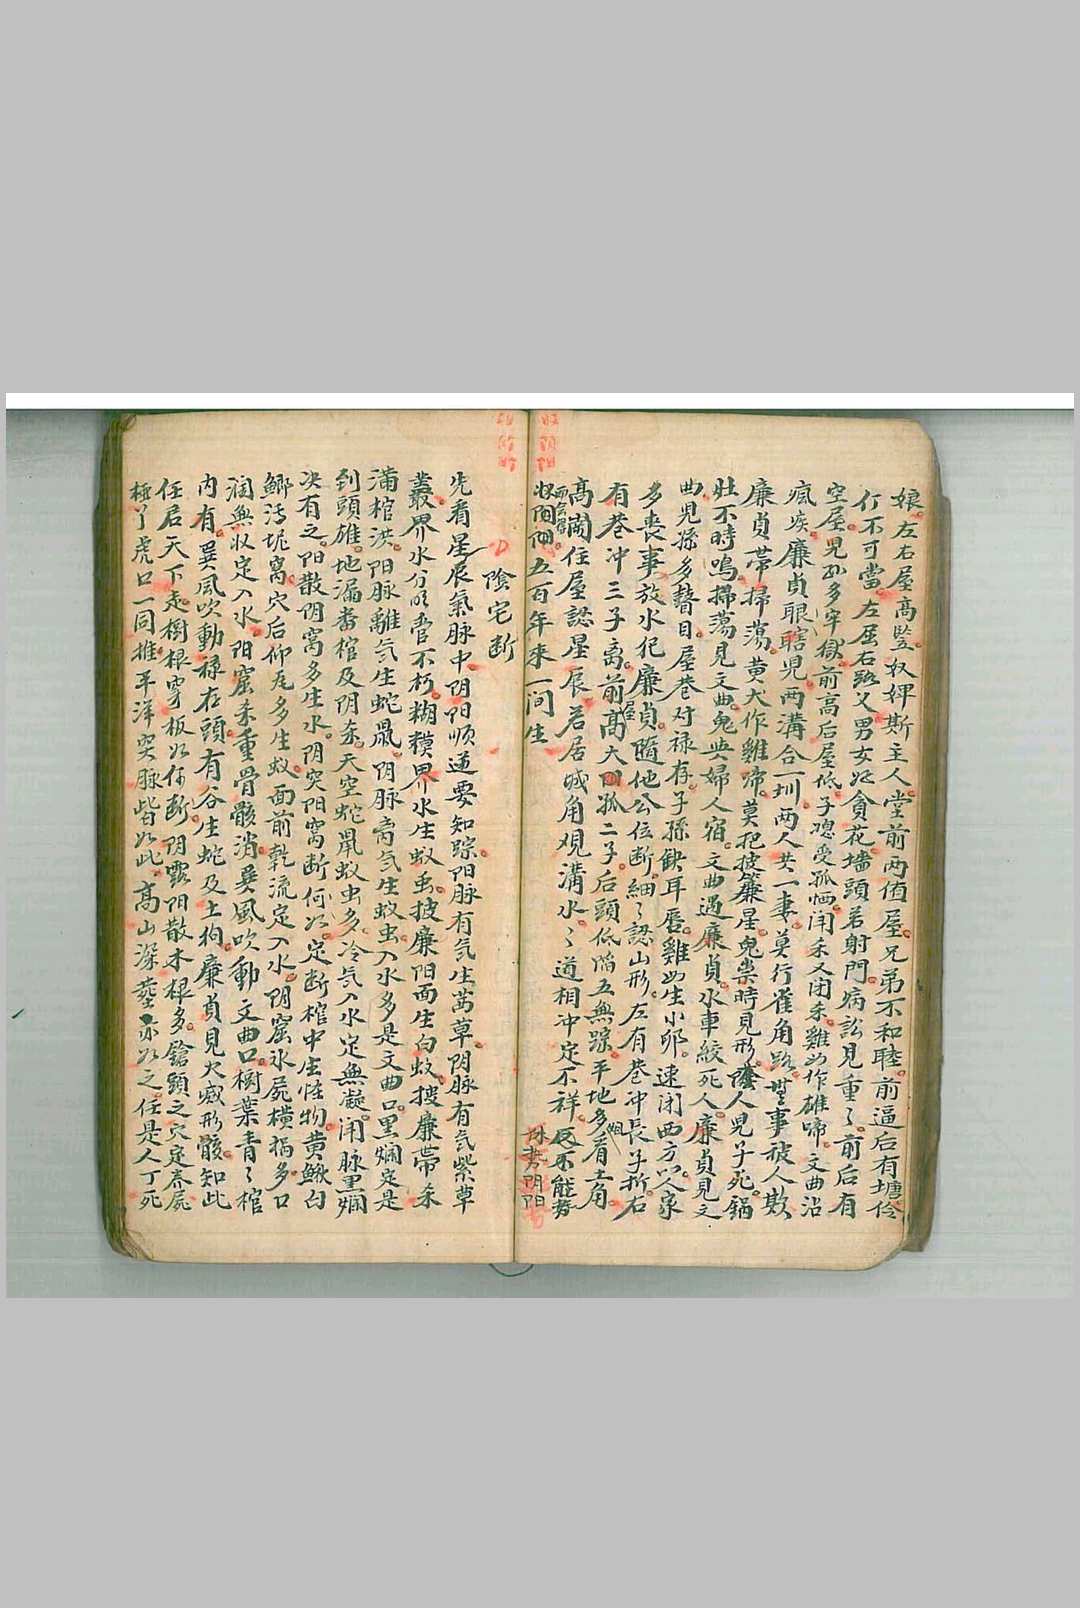 娘左右屋高竪奴婢斯主人堂前两值屋兄弟不和睦前逼后有塘伶
行不可當左屈右路义男女必貪花墻頭若射門病訟見重了前后有
空屋児孙多牢獄前高后屋低子媳受孤恓闭杀又闭杀雞幼作雄啼文曲沾
瘋疾廉貞眼瞎児两溝合一圳两人共一妻莫行雀角路無事被人欺
廉貞帶掃蕩黄犬作雞啼莫把披簾星鬼祟時見形人児子死鍋
灶不時鳴掃蕩見文曲鬼與婦人宿文曲遇廉貞水車絞死人廉貞見文
曲児孫多瞽目屋巷对禄存子孫缺耳唇雞幼生小卵速闭西方以人家
多丧事放水犯廉貞隨他公位断細了認山形左有巷冲長子折右
有巷冲三子离前屋高大四孤二子后頭低陷五無踪平地多看土角
高崗住屋認星辰若居城角观溝水水道相冲定不祥
五百年来一间生
陰宅断
先看星辰氣脉中阴阳順逆要知踪阳脉有気生萬草阴脉有気紫草
叢界水分明骨不朽糊糢界水生蚁虫披廉阳面生白蚁搜廉帶杀
满棺洪阳脉離気生蛇鼠阴脉离気生蚁虫入水多是文曲口黑爛定是
到頭雄地漏番棺及阴杀天空蛇鼠蚁虫多冷気入水定無凝闭脉黑爛
决有之阳散阴窝多生水阴突阳窝断何以定断棺中生怪物黄鰍白
鱂污坭窩穴后仰瓦多生蚁面前乾流定入水阴窟氷屍横損多口
濶無収定入水阳窟杀重骨骸消巽風吹動文曲口樹葉青了棺
内有巽風吹動禄在頭有谷生蛇及土狗廉貞見火威形骸知此
任居天下走樹根穿板以何断阴露阳散木根多鎗頭之穴定春屍
極了虎口一同推平洋突脉皆以此高山深葬亦以之任是人丁死